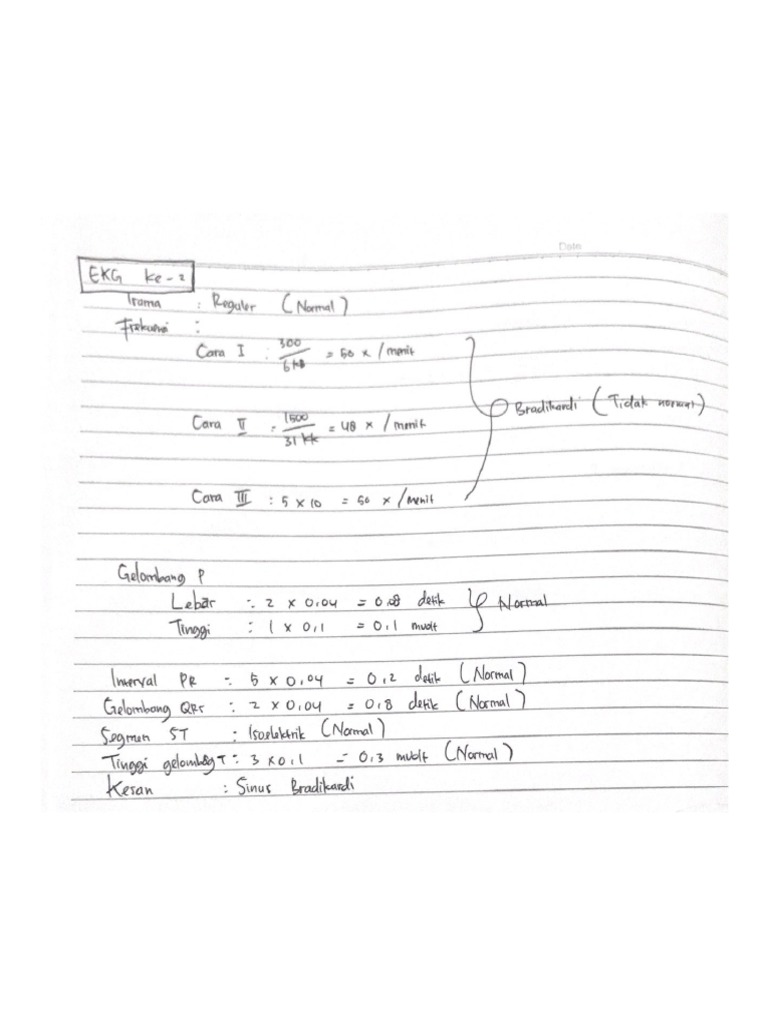 Date
EKG ke-2
Irama : Reguler (Normal)
Frekuensi :
Cara I : 300 / 6 kb = 50 x / menit
Cara II : 1500 / 31 kk = 48 x / menit
Bradikardi (Tidak normal)
Cara III : 5 x 10 = 50 x / menit
Gelombang P
Lebar : 2 x 0,04 = 0,08 detik
Normal
Tinggi : 1 x 0,1 = 0,1 mvolt
Interval PR : 5 x 0,04 = 0,2 detik (Normal)
Gelombang QRS : 2 x 0,04 = 0,8 detik (Normal)
Segmen ST : Isoelektrik (Normal)
Tinggi gelombg T : 3 x 0,1 = 0,3 mvolt (Normal)
Kesan : Sinus Bradikardi